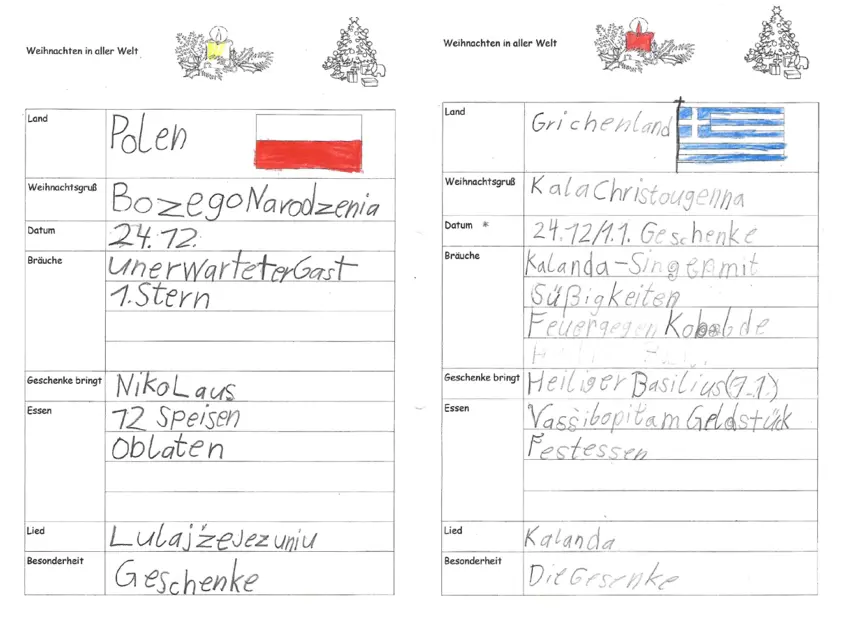 Weihnachten in aller Welt
Land
Polen
Weihnachtsgruß
Bozego Narodzenia
Datum
24.12.
Bräuche
unerwarteter Gast
1. Stern
Geschenke bringt
Nikolaus
Essen
12 Speisen
Oblaten
Lied
Lulajże Jezuniu
Besonderheit
Geschenke
Weihnachten in aller Welt
Land
Grichenland
Weihnachtsgruß
Kala Christougenna
Datum *
24.12/1.1. Geschenke
Bräuche
Kalanda-Singen mit
Süßigkeiten
Feuer gegen Kobolde
Geschenke bringt
Heiliger Basilius (1.1.)
Essen
Vassilopita m Geldstück
Festessen
Lied
Kalanda
Besonderheit
Die Gesenke